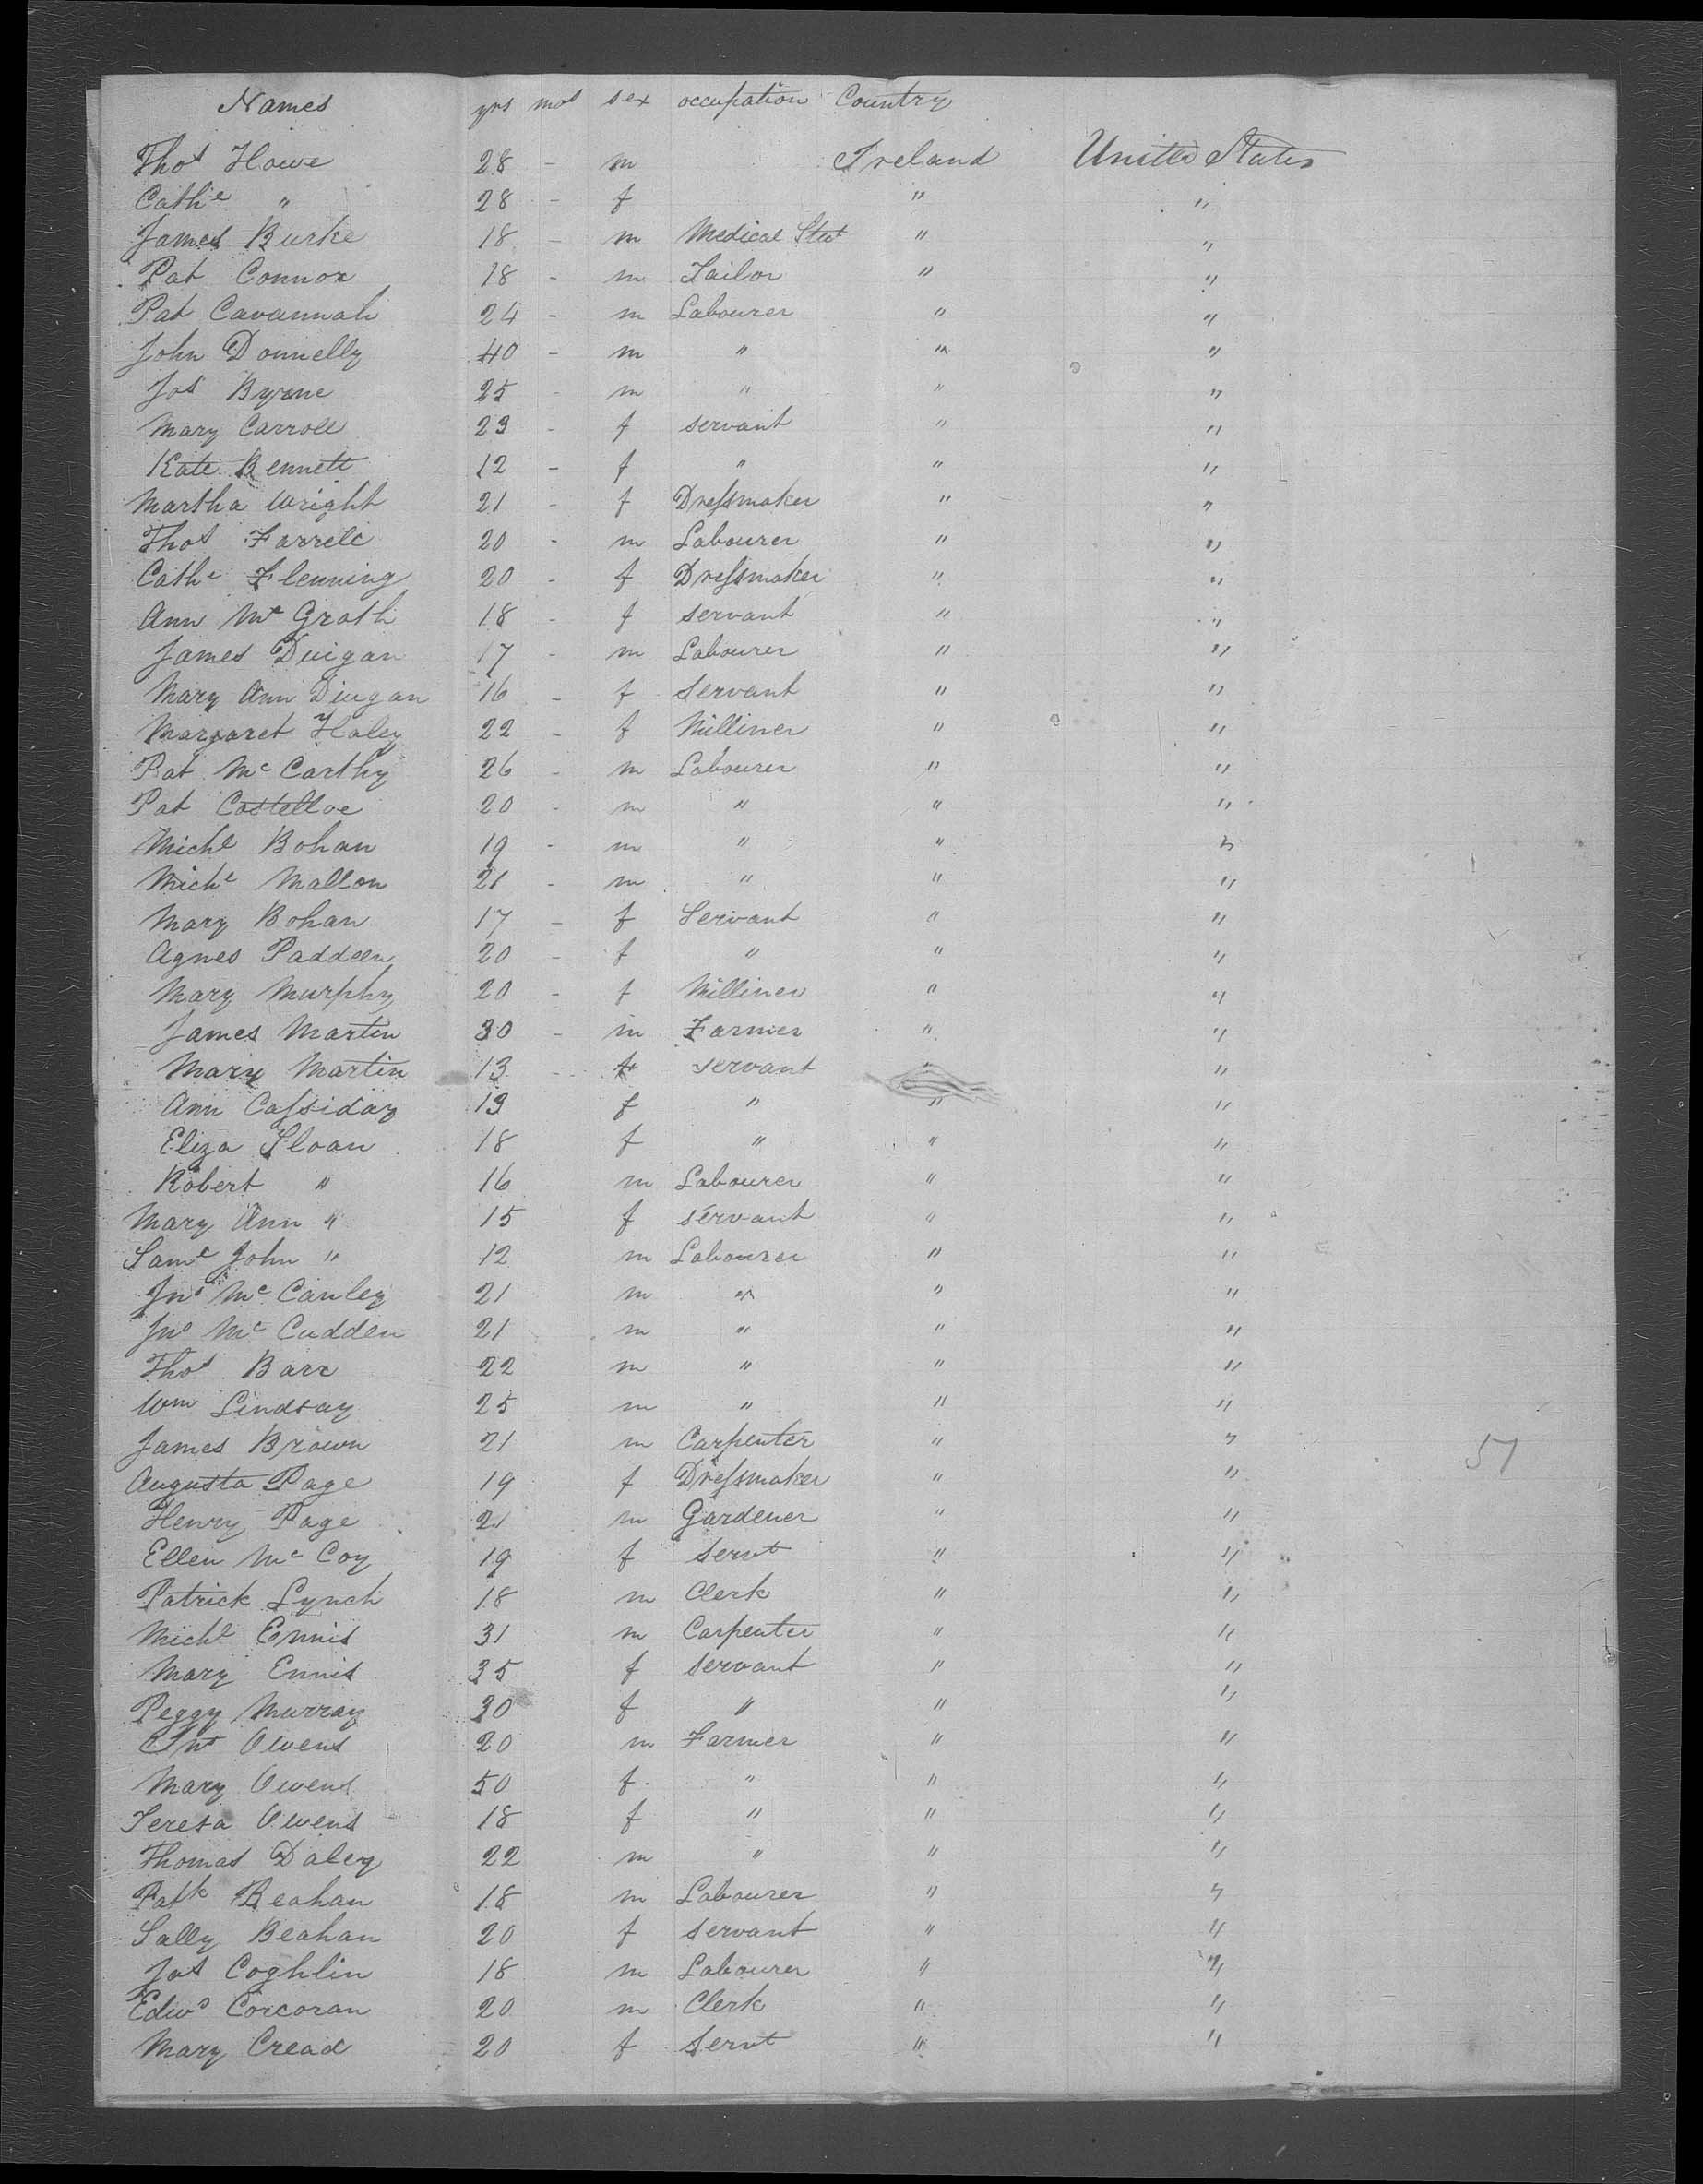 Names yrs mos sex occupation Country
Thos Howe 28 - m Ireland United States
Cathe " 28 - f " "
James Burke 18 - m Medical Stut " "
Pat Connor 18 - m Tailor " "
Pat Cavannah 24 - m Labourer " "
John Donnelly 40 - m " " "
Jos Byrne 25 - m " " "
Mary Carroll 23 - f servant " "
Kate Bennett 12 - f " " "
Martha Wright 21 - f Dressmaker " "
Thos Farrell 20 - m Labourer " "
Cathe Flenning 20 - f Dressmaker " "
Ann Mc Grath 18 - f servant " "
James Duigan 17 - m Labourer " "
Mary Ann Diugan 16 - f Servant " "
Margaret Haley 22 - f Milliner " "
Pat Mc Carthy 26 - m Labourer " "
Pat Costelloe 20 - m " " "
Michl Bohan 19 - m " " "
Michl Mallon 21 - m " " "
Mary Bohan 17 - f Servant " "
Agnes Paddeen 20 - f " " "
Mary Murphy 20 - f Milliner " "
James Martin 30 - m Farmer " "
Mary Martin 13 - f servant " "
Ann Cassiday 19 f " " "
Eliza Sloan 18 f " " "
Robert " 16 m Labourer " "
Mary Ann " 15 f servant " "
Saml John " 12 m Labourer " "
Jno Mc Cauley 21 m " " "
Jno Mc Cudden 21 m " " "
Thos Barr 22 m " " "
Wm Lindsay 25 m " " "
James Brown 21 m Carpenter " " 51
Augusta Page 19 f Dressmaker " "
Henry Page 21 m Gardener " "
Ellen Mc Coy 19 f Servt " "
Patrick Lynch 18 m Clerk " "
Michl Ennis 31 m Carpenter " "
Mary Ennis 35 f servant " "
Peggy Murray 30 f " " "
Owens 20 m Farmer " "
Mary Owens 50 f " " "
Teresa Owens 18 f " " "
Thomas Daley 22 m " " "
Patk Beahan 18 m Labourer " "
Sally Beahan 20 f servant " "
Jas Coghlin 18 m Labourer " "
Edwd Corcoran 20 m Clerk " "
Mary Cread 20 f Servt " "